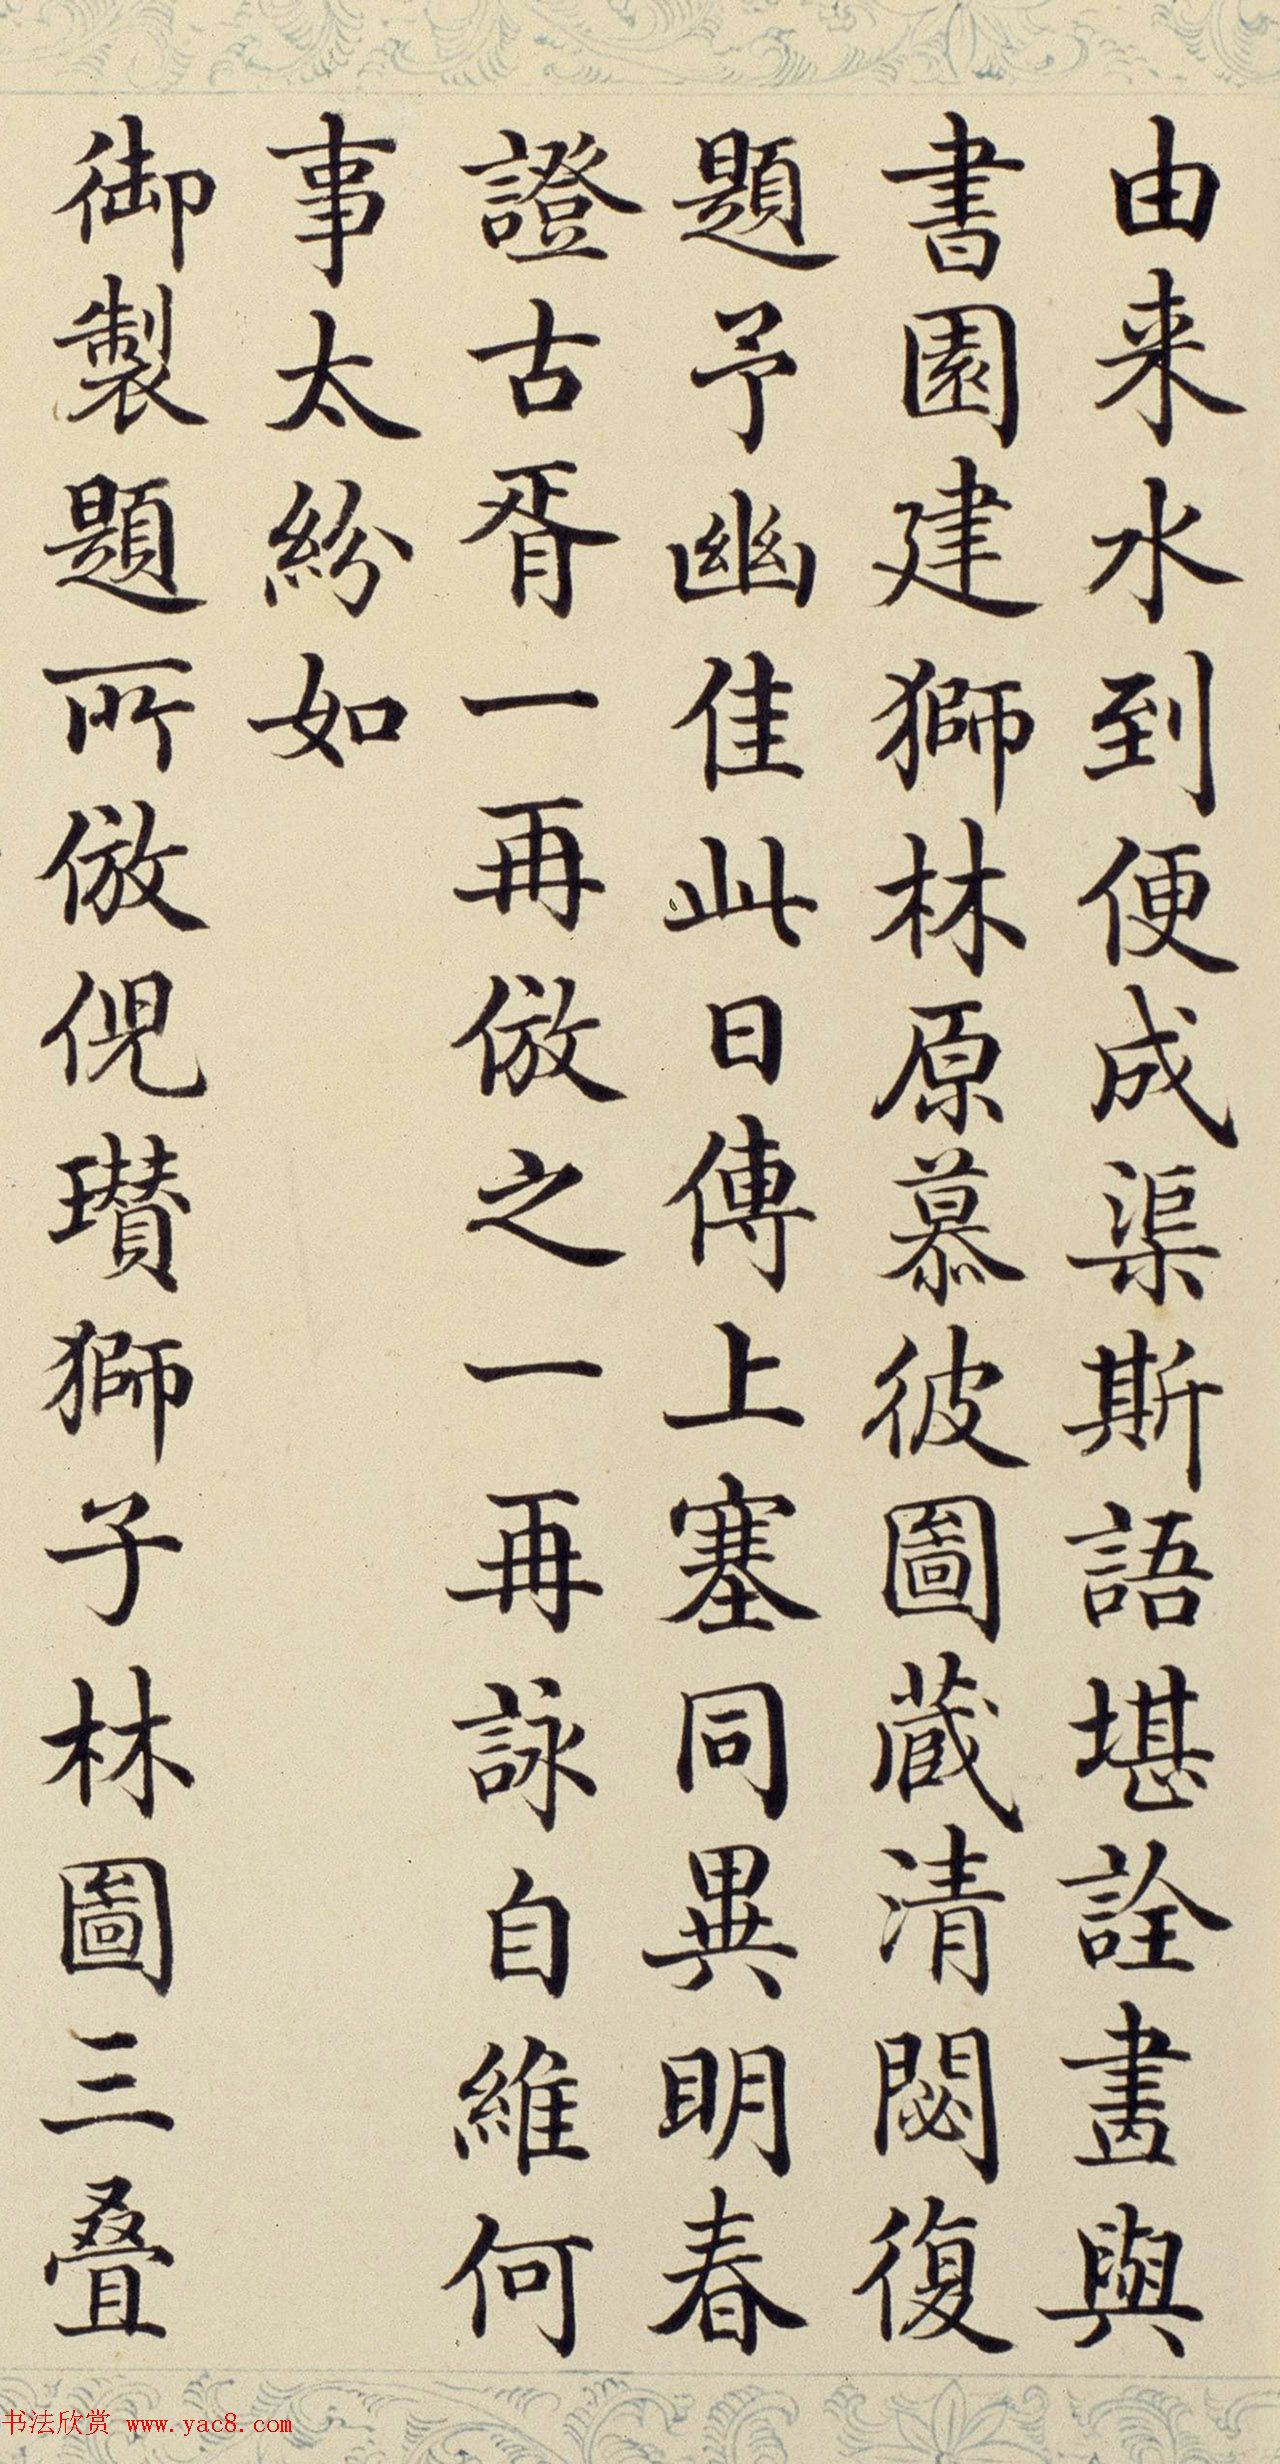 由来水到便成渠斯語堪詮畫與
書園建獅林原慕彼圖蔵清閟復
題予幽佳此日傳上塞同異明春
證古胥一再倣之一再詠自維何
事太紛如
御製題所倣倪瓚獅子林圖三疊
书法欣赏 www.yac8.com